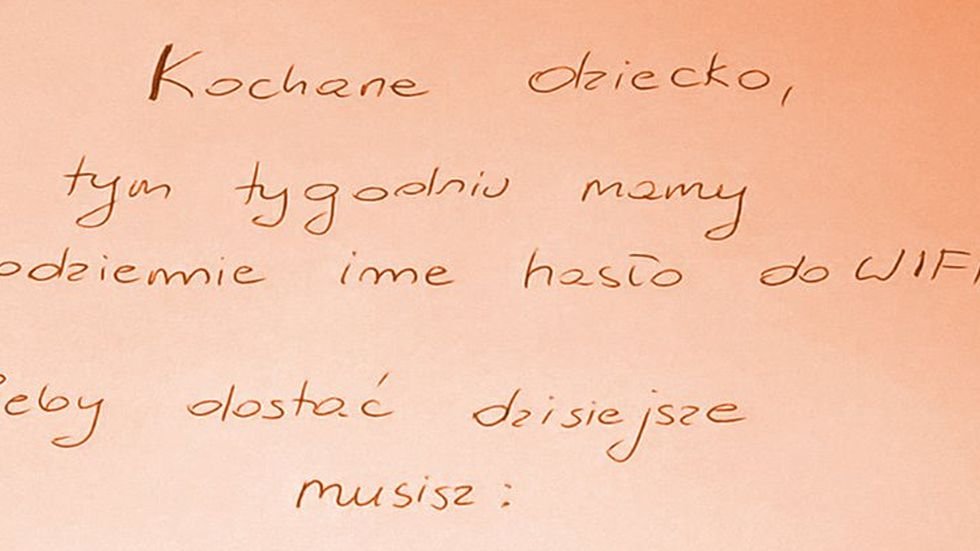 Kochane dziecko,
tym tygodniu mamy
odziennie inne hasło do WIFI
eby dostać dzisiejsze
musisz: